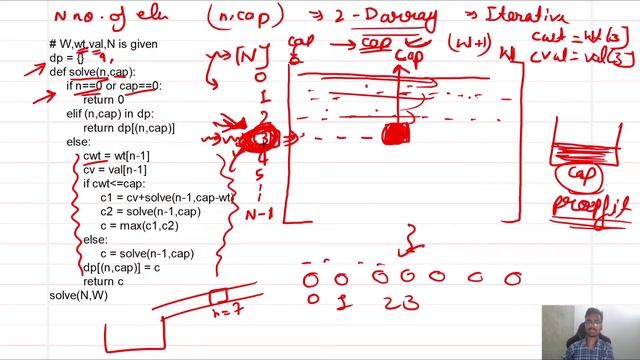 N no. of ele (n,cap) ⇒ 2-Darray ⇒ Iterative
# W,wt,val,N is given
dp = {}
def solve(n,cap):
if n==0 or cap==0:
return 0
elif (n,cap) in dp:
return dp[(n,cap)]
else:
cwt = wt[n-1]
cv = val[n-1]
if cwt<=cap:
c1 = cv+solve(n-1,cap-wt)
c2 = solve(n-1,cap)
c = max(c1,c2)
else:
c = solve(n-1,cap)
dp[(n,cap)] = c
return c
solve(N,W)
n=7
[N]
0
1
2
3
4
5
N-1
cap → cap (W+1) W
0
cap
cwt = wt[3]
cval = val[3]
cap
proffit
0 0 0 0 0 0 0
0 1 2 3